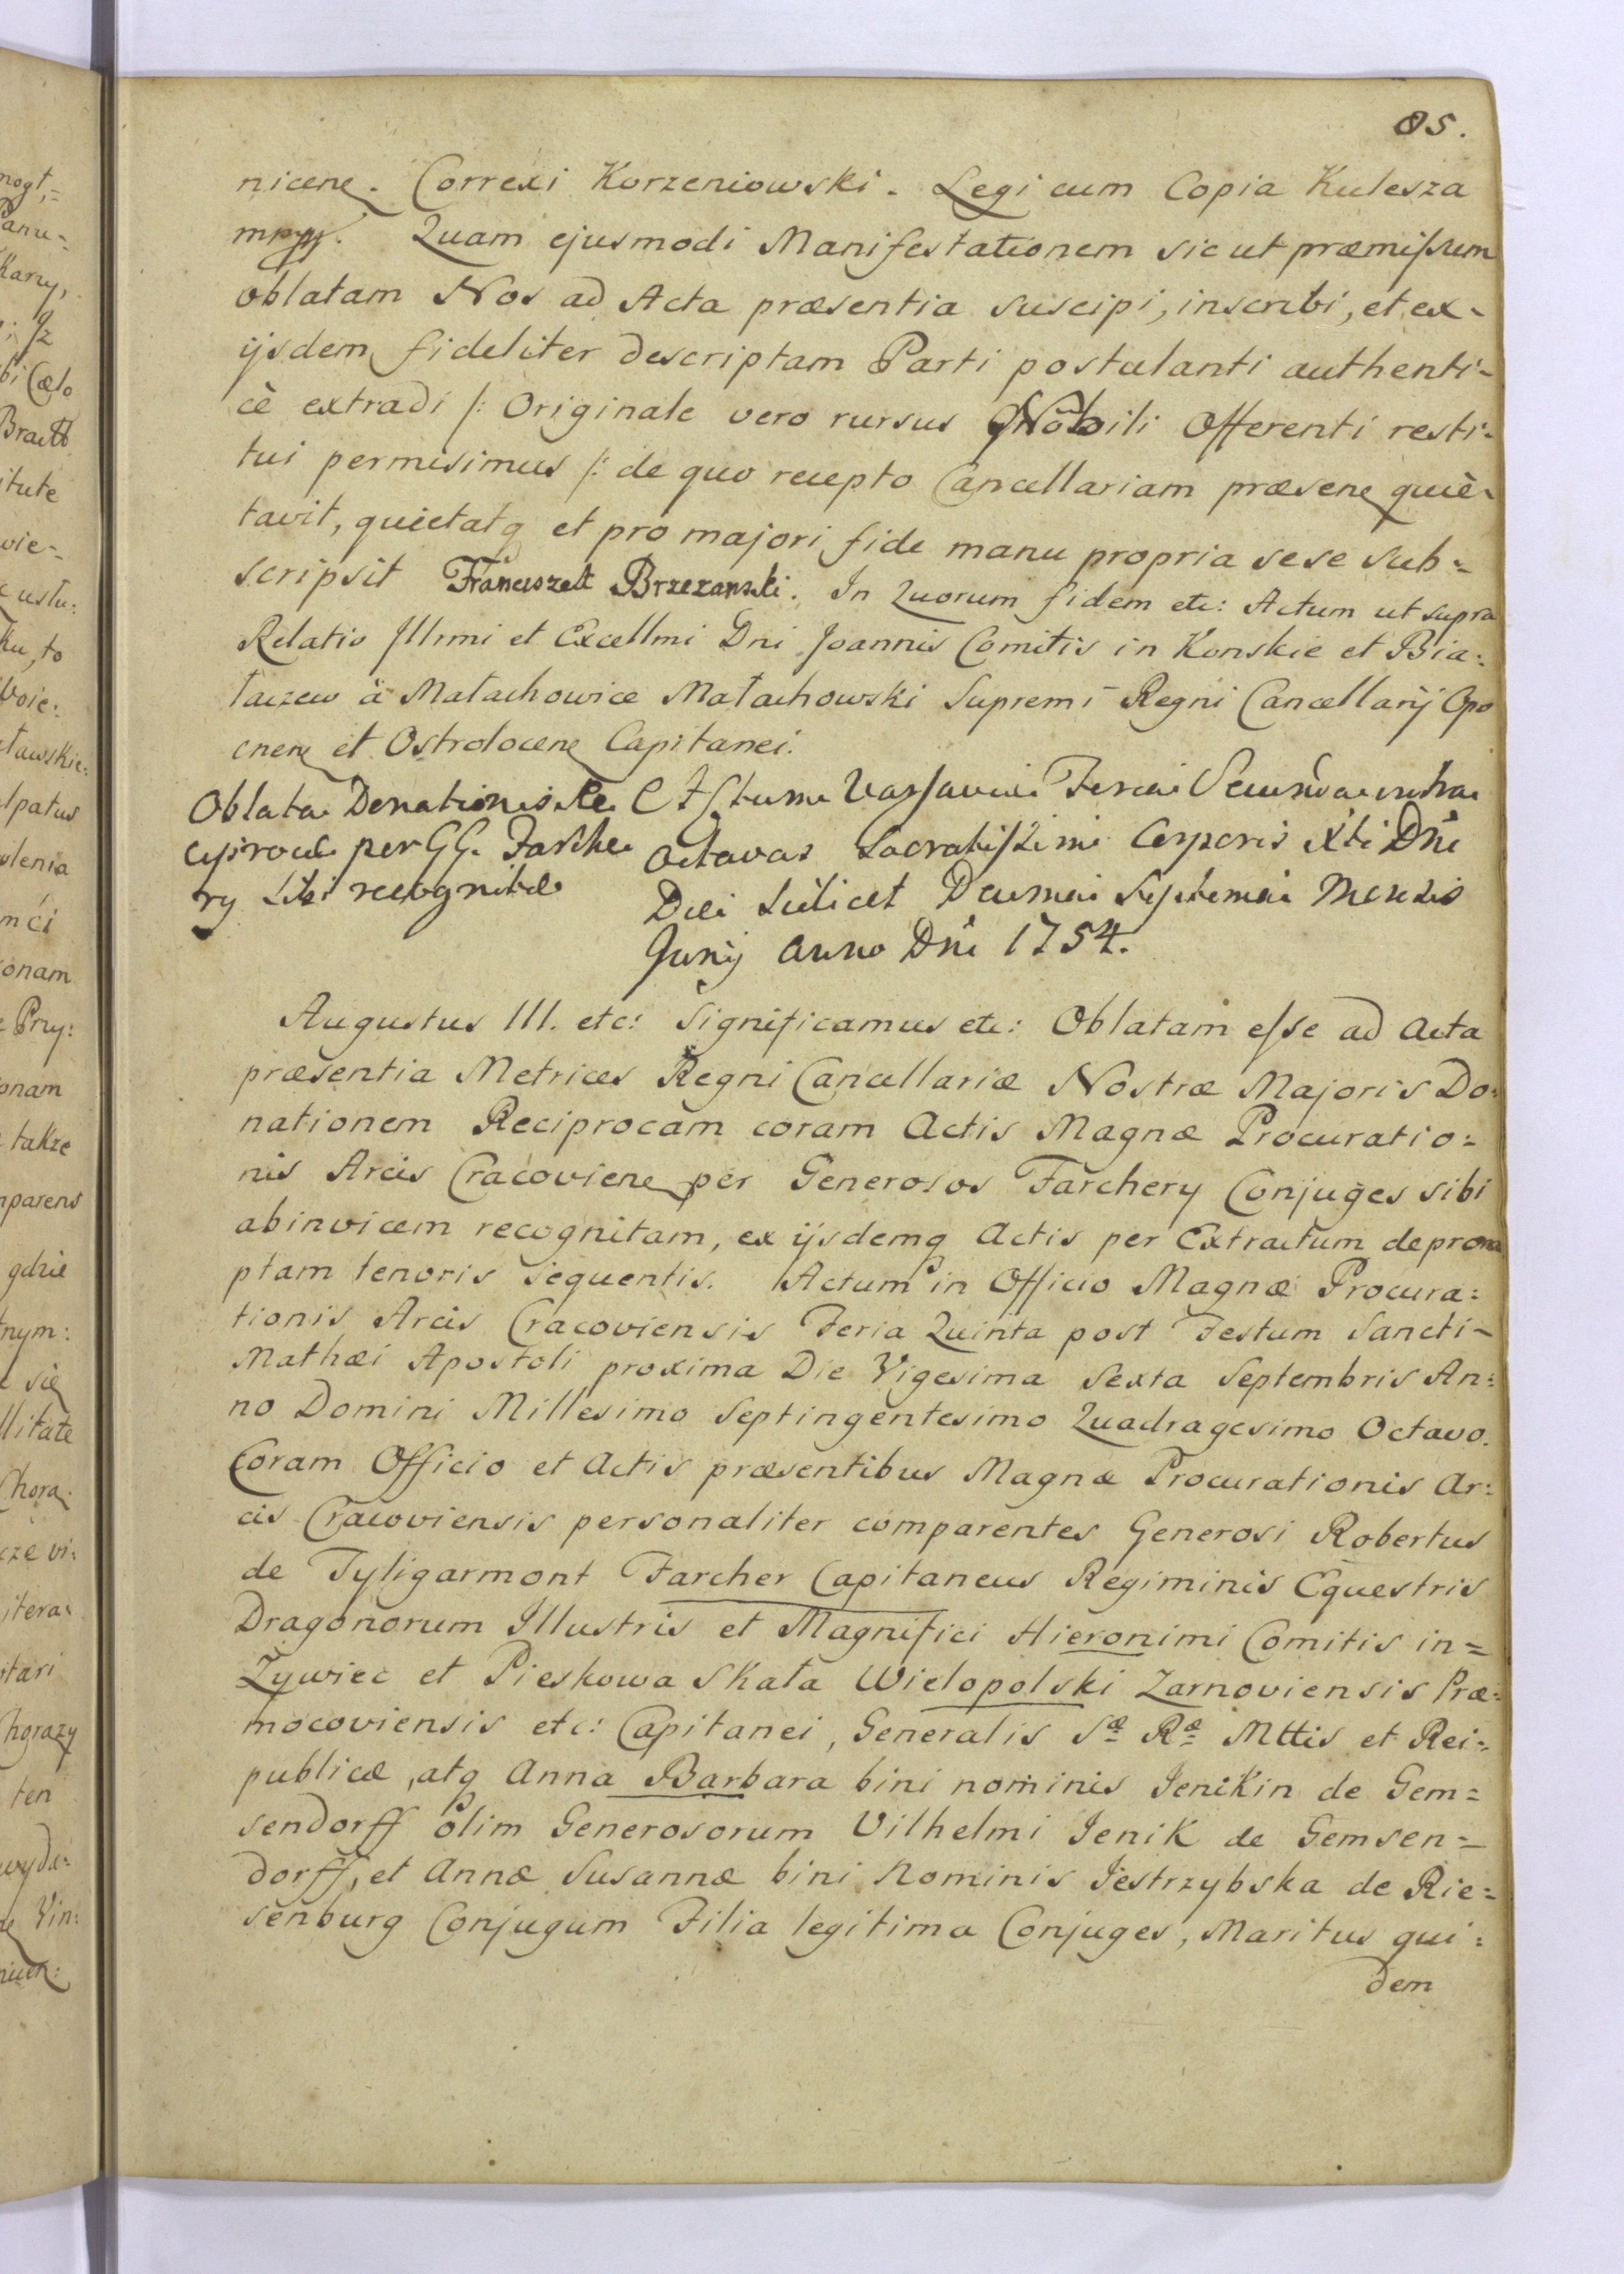 85.
nicene. Correxi Korzeniowski. Legi cum Copia Kulesza
mpp. Quam ejusmodi Manifestationem sicut præmissum
oblatam Nos ad Acta præsentia suscipi, inscribi, et ex-
ijsdem fideliter descriptam Parti postulanti authenti-
cè extradi /: Originale vero rursus GNobili Offerenti resti-
tui permisimus /: de quo recepto Cancellariam præsene quiè-
tavit, quietatq et pro majori fide manu propria sese sub=
scripsit Franciszek Brzezanski. In Quorum fidem etc: Actum ut supra
Relatio Illrmi et Excellmi Dni Joannis Comitis in Konskie et Bia:
łaczew à Małachowice Małachowski Supremi Regni Cancellarij Opo
cnene et Ostrolocene Capitanei.
Oblata Donationis Re
ciprocæ per GG. Farche
ry sibi recognitæ
Actum Varsaviæ Feria Secunda intra
octavas Sacratissimi Corporis Xti Dni
Die scilicet Decima Septima Mensis
Junij Anno Dni 1754.
Augustus III. etc: Significamus etc: Oblatam esse ad Acta
præsentia Metrices Regni Cancellariæ Nostræ Majoris Do:
nationem Reciprocam coram Actis Magnæ Procuratio=
nis Arcis Cracoviene per Generosos Farchery Conjuges sibi
abinvicem recognitam, ex ijsdemq Actis per Extractum deprom
ptam tenoris sequentis. Actum in Officio Magnæ Procura:
tionis Arcis Cracoviensis Feria Quinta post Festum Sancti-
Mathæi Apostoli proxima Die Vigesima Sexta Septembris An:
no Domini Millesimo Septingentesimo Quadragesimo Octavo.
Coram Officio et Actis præsentibus Magnæ Procurationis Ar:
cis Cracoviensis personaliter comparentes Generosi Robertus
de Tyligarmont Farcher Capitaneus Regiminis Equestris
Dragonorum Illustris et Magnifici Hieronimi Comitis in=
Zywiec et Pieskowa Skała Wielopolski Zarnoviensis Præ=
mocoviensis etc: Capitanei, Generalis Sæ Ræ Mttis et Rei=
publicæ, atq Anna Barbara bini nominis Jenikin de Gem=
sendorff olim Generosorum Vilhelmi Jenik de Gemsen=
dorff, et Annæ Susannæ bini Nominis Jestrzybska de Rie=
senburg Conjugum Filia legitima Conjuges, Maritus qui=
dem